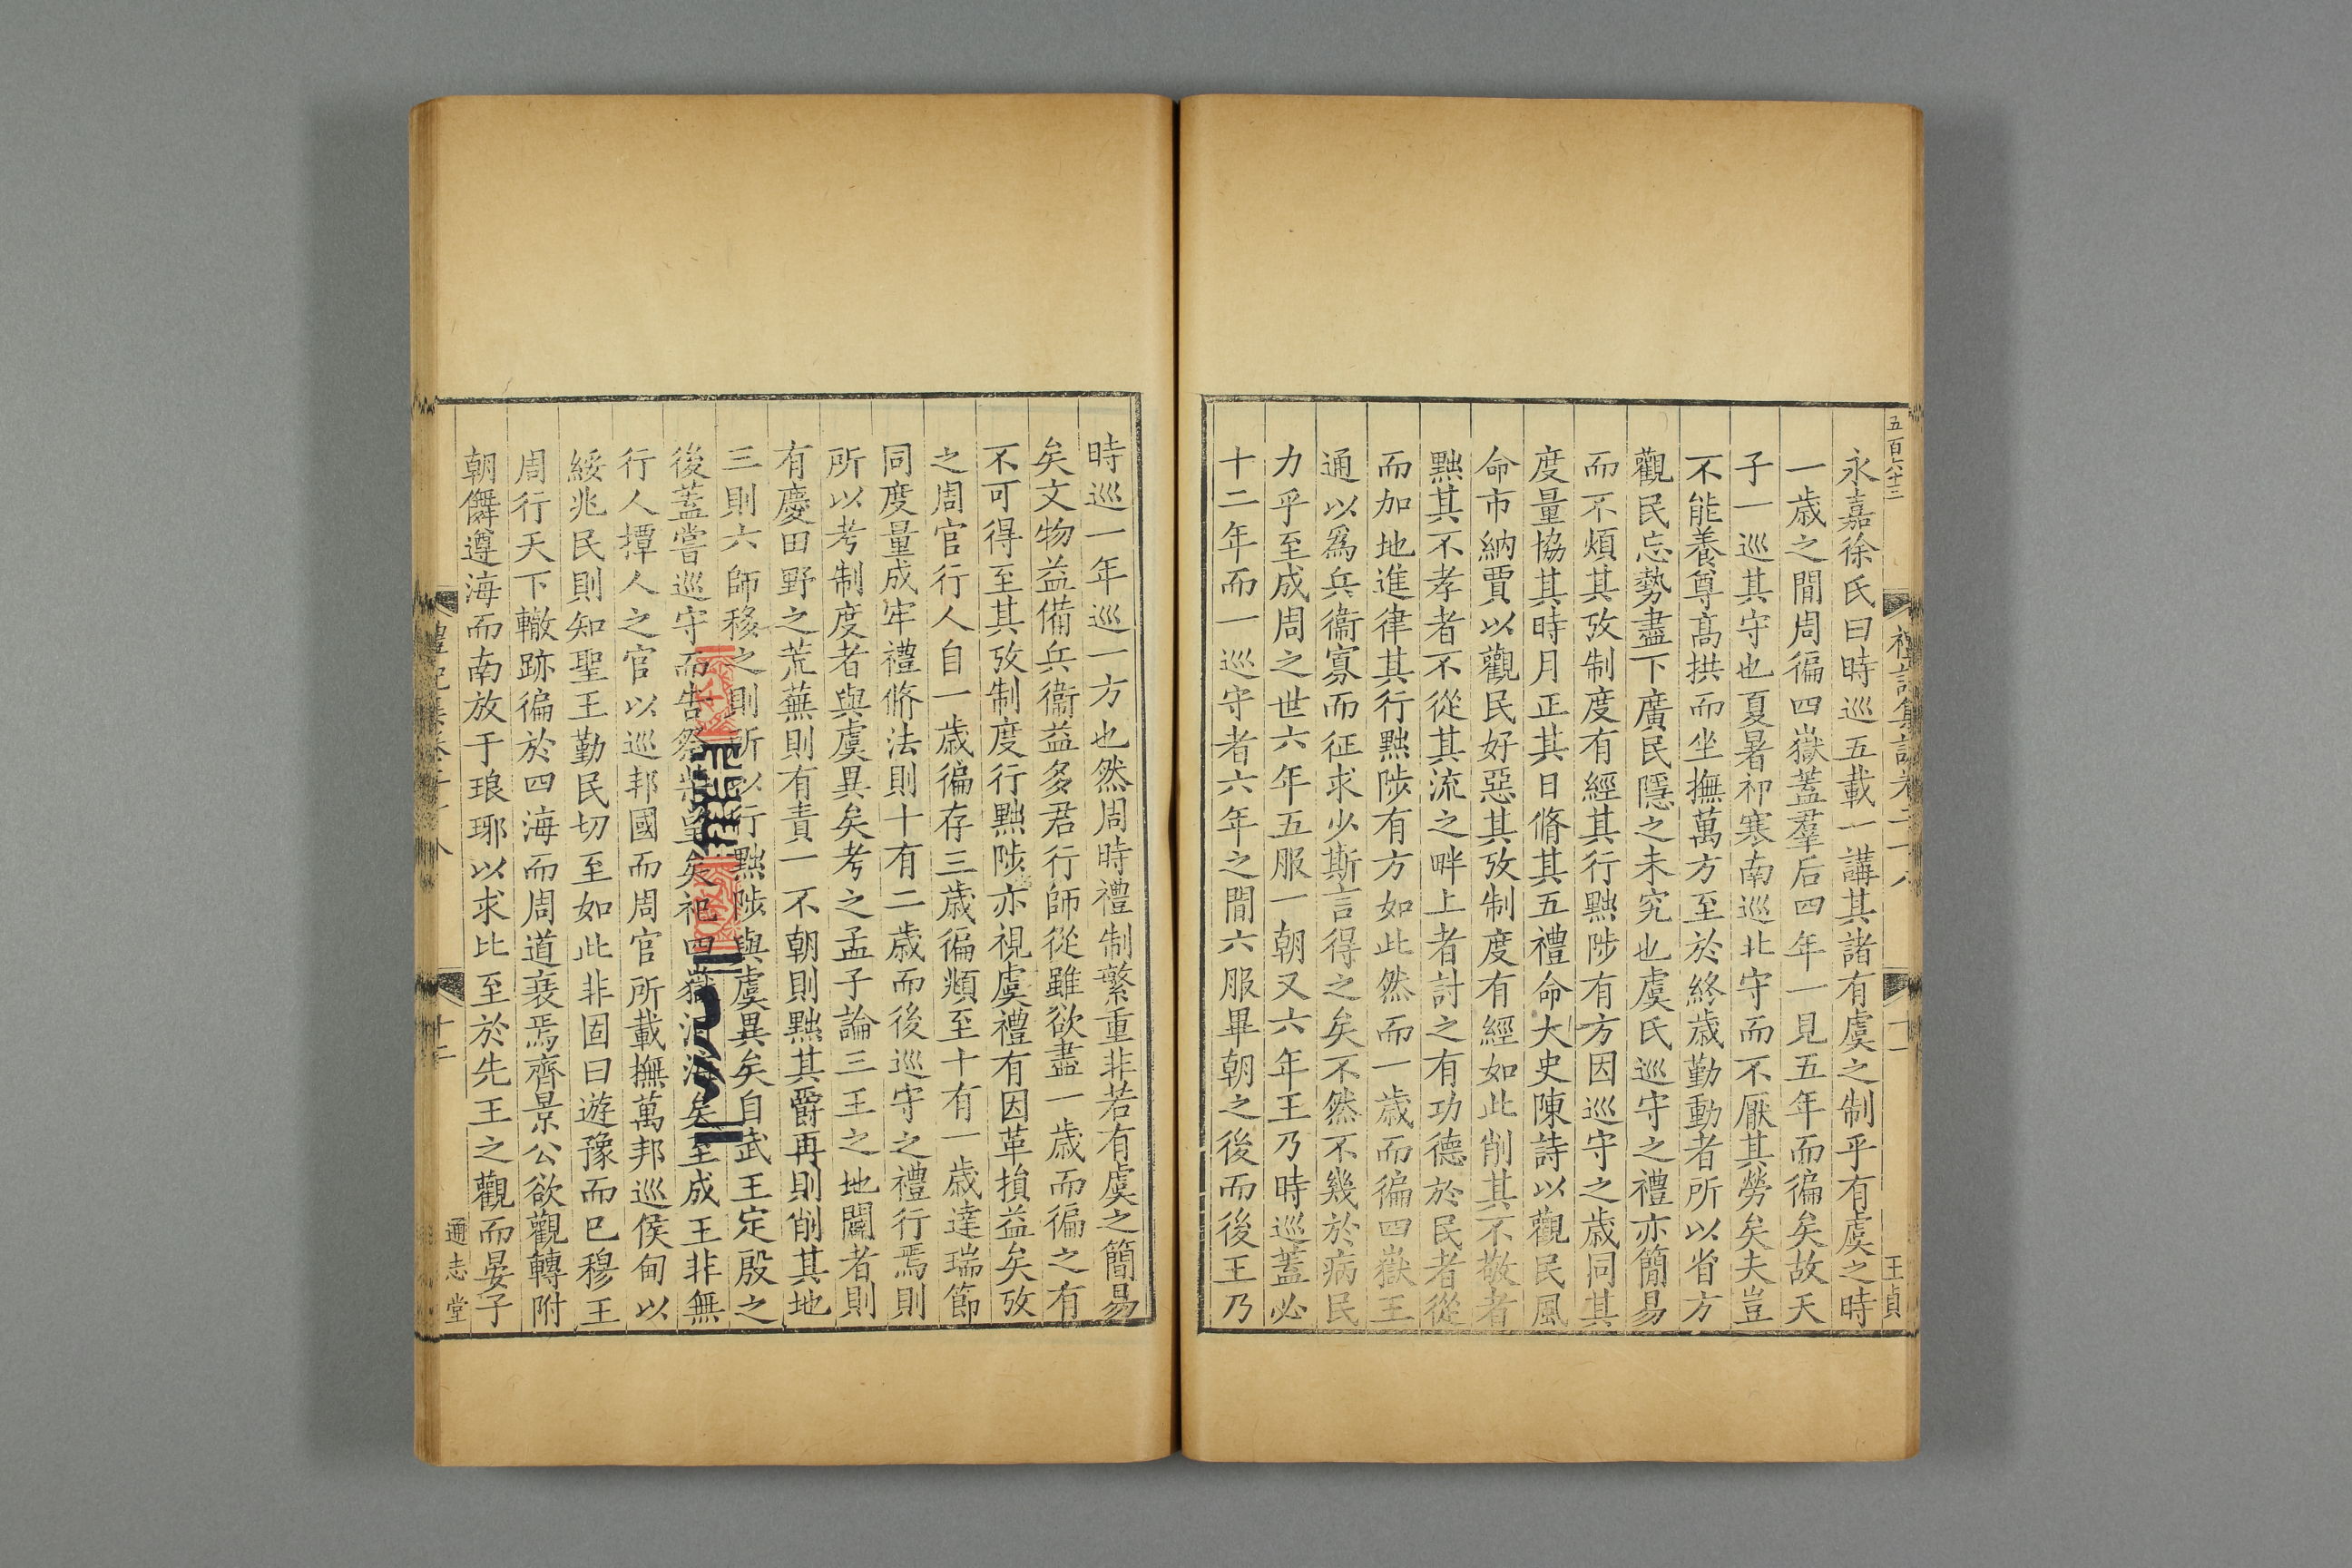 五百六十三
禮記集說卷二十八
十一
王貞
永嘉徐氏曰時巡五載一講其諸有虞之制乎有虞之時
一歲之間周徧四嶽蓋羣后四年一見五年而徧矣故天
子一巡其守也夏暑祁寒南巡北守而不厭其勞矣夫豈
不能養尊髙拱而坐撫萬方至於終歲勤動者所以省方
觀民忘勢盡下廣民隱之未究也虞氏巡守之禮亦簡易
而不煩其攷制度有經其行黜陟有方因巡守之歲同其
度量協其時月正其日脩其五禮命大史陳詩以觀民風
命市納賈以觀民好惡其攷制度有經如此削其不敬者
黜其不孝者不從其流之畔上者討之有功德於民者從
而加地進律其行黜陟有方如此然而一歲而徧四嶽王
通以爲兵衞寡而征求少斯言得之矣不然不幾於病民
力乎至成周之世六年五服一朝又六年王乃時巡蓋必
十二年而一巡守者六年之間六服畢朝之後而後王乃
時巡一年巡一方也然周時禮制繁重非若有虞之簡易
矣文物益備兵衞益多君行師從雖欲盡一歲而徧之有
不可得至其攷制度行黜陟亦視虞禮有因革損益矣攷
之周官行人自一歲徧存三歲徧頫至十有一歲達瑞節
同度量成牢禮脩法則十有二歲而後巡守之禮行焉則
所以考制度者與虞異矣考之孟子論三王之地闢者則
有慶田野之荒蕪則有責一不朝則黜其爵再則削其地
三則六師移之則所以行黜陟與虞異矣自武王定殷之
後蓋嘗巡守而告祭柴望矣祀四嶽河海矣至成王非無
行人撢人之官以巡邦國而周官所載撫萬邦巡侯甸以
綏兆民則知聖王勤民切至如此非固曰遊豫而已穆王
周行天下轍跡徧於四海而周道衰焉齊景公欲觀轉附
朝儛遵海而南放于琅琊以求比至於先王之觀而晏子
通志堂